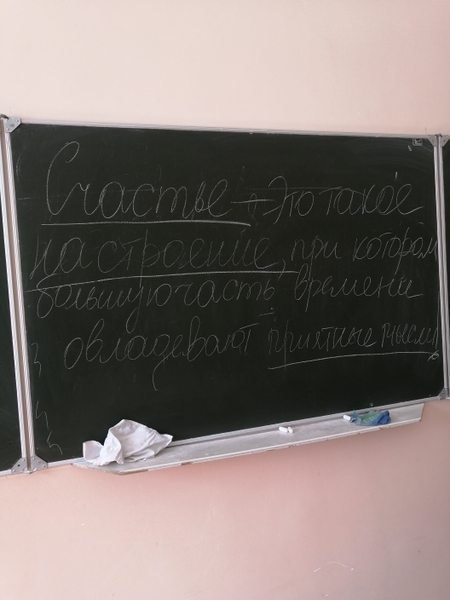 Счастье - это такое
настроение, при котором
большую часть времени
овладевают приятные мысли